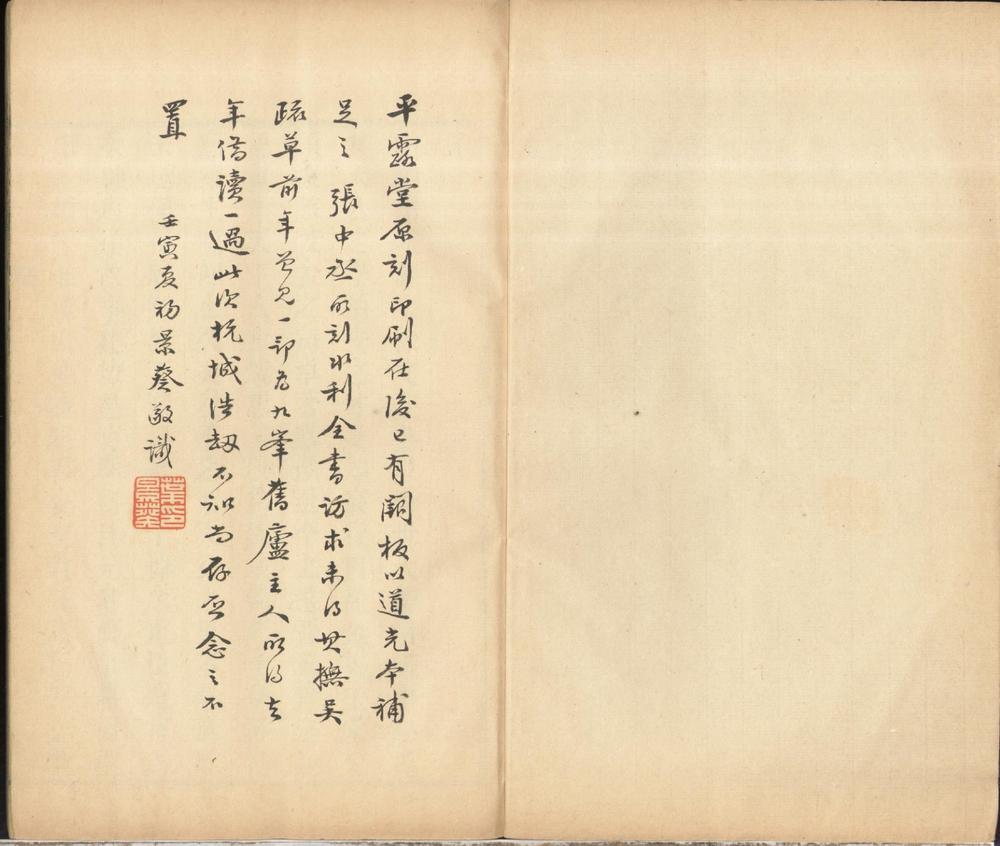 平露堂原刻印刷在後已有闕板以道光本補
足之 張中丞所刻水利全書訪求未得其撫吴
疏草前年曾見一部為九峯舊廬主人所得去
年借讀一過此次杭城浩劫不知尚存否念之不
置
壬寅夏初景葵敬識
葉印景葵